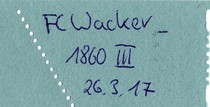 FC Wacker_
1860 III
26.3.17